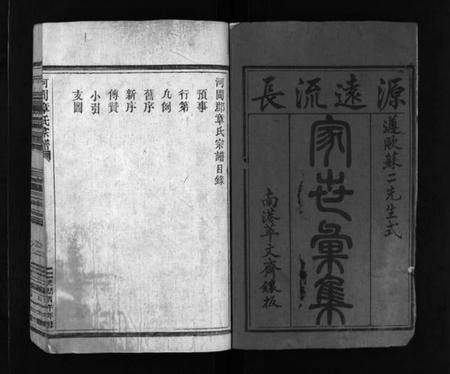 源遠流長
遵歐蘇二先生式
家世彙集
南港萃文齋鋟板
河間郡章氏宗譜目錄
預事
行第
凡例
舊序
新序
傳贊
小引
支圖
河間章氏宗譜